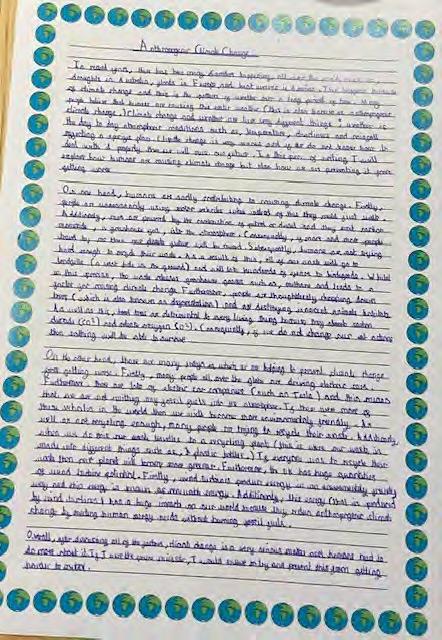 Anthropogenic Climate Change
In recent years, there has been many disasters happening all over the world such as
droughts in Australia, floods in Europe and heat waves in America. This happens because
of climate change and this is the pattern of weather over a long period of time. Many
people believe that humans are causing this
climate change.) Climate change and weather are two very different things: weather is
the day to day atmospheric conditions such as, temperature, and rainfall
regarding a specific place. Climate change is very serious and if we do not know how to
deal with it properly then it will ruin our future. In this piece of writing I will
explain how humans are causing climate change but also how we are preventing it from
getting worse.
On one hand, humans are sadly contributing to causing climate change. Firstly,
people are unnecessarily using motor vehicles when instead of this they could just walk.
Additionally, cars are powered by the combustion of petrol or diesel and they emit carbon
monoxide, a greenhouse gas, into the atmosphere. Consequently, if more and more people
travel by car then our planet will be ruined. Subsequently, humans are not trying
hard enough to recycle their waste. As a result of this, all of our waste will go to
landfills (a vast hole in the ground) and will take hundreds of years to biodegrade. Whilst
in this process, the waste emits greenhouse gases such as, methane and leads to a
factor for causing climate change. Furthermore, people are thoughtlessly chopping down
trees (which is also known as deforestation) and are destroying innocent animals habitats.
As well as this, trees are detrimental to every living thing because they absorb carbon
dioxide (CO²) and create oxygen (O²). Consequently, if we do not change our act
then nothing will be able to survive.
On the other hand, there are many ways in which we are helping to prevent climate change
from getting worse. Firstly, many people all over the globe are driving electric cars.
Furthermore, there are lots of electric car companies (such as Tesla) and this means
that we are not emitting any fossil fuels into the atmosphere. If there were more of
these vehicles in the world then we will become more environmentally friendly. As
well as not recycling enough, many people are trying to recycle their waste. Additionally,
when we do this our waste travels to a recycling plant (this is where our waste is
made into different things such as, a plastic bottle.) If everyone was to recycle their
waste then our planet will become more greener. Furthermore, the UK has huge quantities
of wind turbine
way and this energy is known as renewable energy. Additionally, this energy (that is produced
by wind turbines) has a huge impact on our world because they reduce anthropogenic climate
change by making human energy needs without burning fossil fuels.
Overall, after discussing all of the factors, climate change is a very serious matter and humans need to
do more about it. If I were the prime minister, I would try and prevent this from getting
harder to